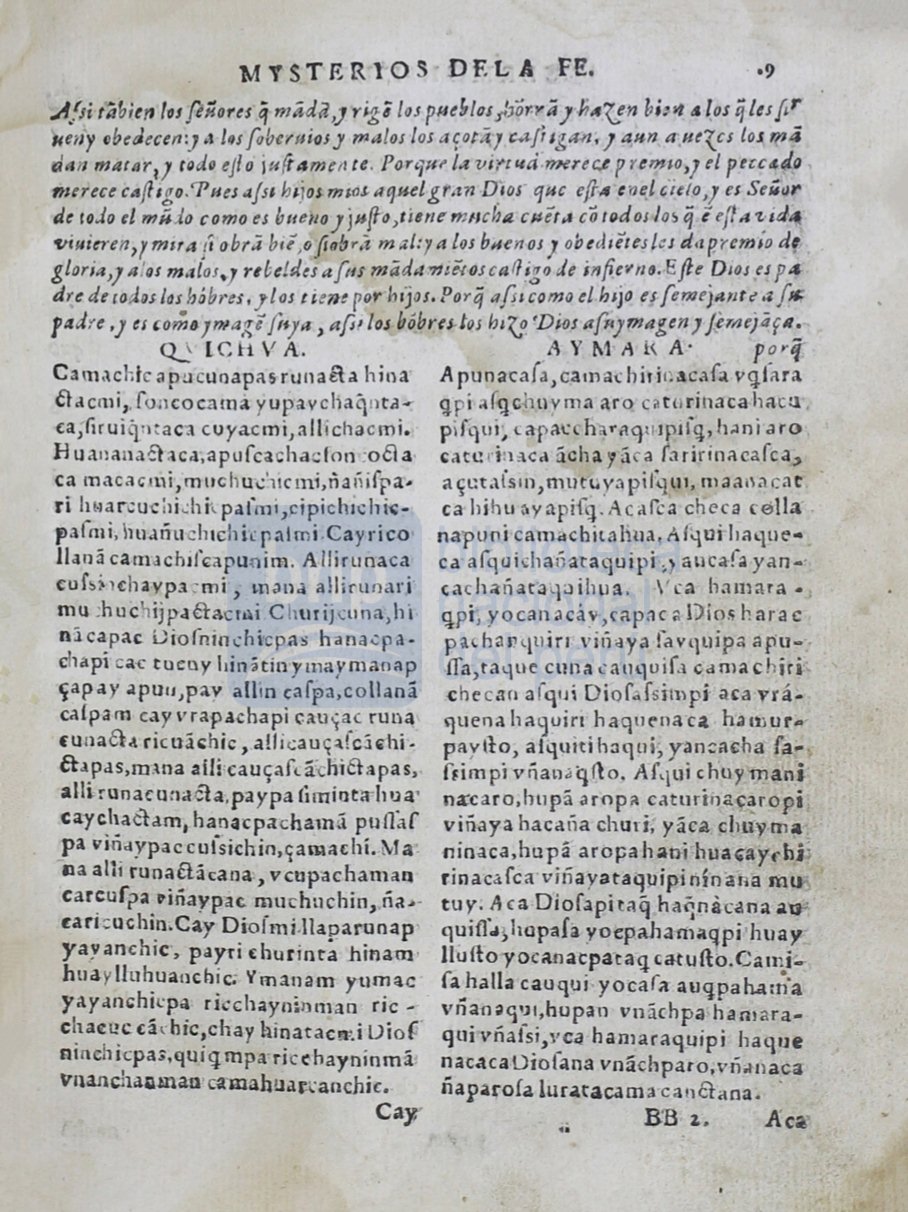 MYSTERIOS DELA FE. 9
Aſsi tābien los ſeñores q̄ mādā, y rigē los pueblos, hōrrā y hazen bien a los q̄ les ſir
uen y obedecen: y a los ſoberuios y malos los açotā y caſtigan, y aun a uezes los mā
dan matar, y todo eſto juſtamente. Porque la virtud merece premio, y el peccado
merece caſtigo. Pues aſsi hijos mios aquel gran Dios que eſta enel cielo, y es Señor
de todo el mūdo como es bueno y juſto, tiene mucha cuēta cō todos los q̄ ē eſta vida
viuieren, y mira ſi obrā biē, o ſi obrā mal: y a los buenos y obediētes les da premio de
gloria, y alos malos, y rebeldes a ſus mādamiētos caſtigo de infierno. Eſte Dios es pa
dre de todos los hōbres, y los tiene por hijos. Porq̄ aſsi como el hijo es ſemejante a ſu
padre, y es como ymagē ſuya, aſsi los hōbres los hizo Dios aſu ymagen y ſemejāça.
porq̄
QVICHVA.
Camachic apucunapas runacta hina
ctacmi, ſoncocama yupaychaq̄nta-
ca, ſiruiq̄ntaca cuyacmi, allichacmi.
Huananactaca, apuſcachacſoncocta
ca macacmi, muchuchicmi, ñañiſpa-
ri huarcuchichicpaſmi, cipichichic-
paſmi, huañuchichicpaſmi. Cayrico
llanā camachiſcapunim. Allirunaca
cuſsichaypacmi, mana allirunari
muchuchijpactacmi Churijcuna, hi
nācapac Dioſninchicpas hanacpa-
chapi cac tucuy hinātin ymaymanap
çapay apun, pay allin caſpa, collanā
caſpam cay vrapachapi cauçac runa
cunacta ricuāchic, allicauçaſcāchi-
ctapas, mana alli cauçaſcāchictapas,
alli runacunacta, paypa ſiminta hua
caychactam, hanacpachamā puſſaſ
pa viñaypac cuſsichin, çamachi. Ma
na alli runactācana, vcupachaman
carcuſpa viñaypac muchuchin, ña-
caricuchin. Cay Dioſmi llaparunap
yayanchic, payri churinta hinam
huaylluhuanchic. Ymanam yumac
yayanchicpa ricchayninman ric-
chacuc cāchic, chay hinatacmi Dioſ
ninchicpas, quiq̄mpa ricchayninmā
vnanchanman camahuarcanchic.
Cay
AYMARA.
Apunacaſa, camachirinacaſa vq̄ſara
q̄pi aſq̄chuyma aro caturinaca hacu
piſqui, capaccharaquipiſq̄, hani aro
caturinaca ācha yāca ſaririnacaſca,
açutaſsin, mutuyapiſqui, maanacat
ca hihuayapiſq̄. Acaſca checa colla
napuni camachitahua. Aſqui haque-
ca aſquichañataquipi, yaucaſa yan-
cachañataquihua. Vca hamara-
q̄pi, yocanacay, capaca Dios harac
pachanquiri viñaya ſauquipa apu-
ſſa, taque cuna cauquiſa camachiri
checan aſqui Dioſaſsimpi aca vrá-
quena haquiri haquenaca hamur-
payſto, aſquiti haqui, yancacha ſa-
ſsimpi vñanaq̄ſto. Aſqui chuymani
nacaro, hupā aropa caturinacaropi
viñaya hacaña churi, yāca chuyma
ninaca, hupā aropa hani huacaychi
rinacaſca viñayataquipi nínana mu
tuy. Aca Dioſapi taq̄ haq̄nàcana au
quiſſa, hupaſa yocpahamaq̄pi huay
lluſto yocanacpataq̄ catuſto. Cami-
ſa halla cauqui yocaſa auq̄pahama
vñanaqui, hupan vnāchpa hamara-
qui vñaſsi, vca hamaraquipi haque
nacaca Dioſana vnāchparo, vñanaca
ñaparoſa luratacamacanctana.
BB 2. Aca